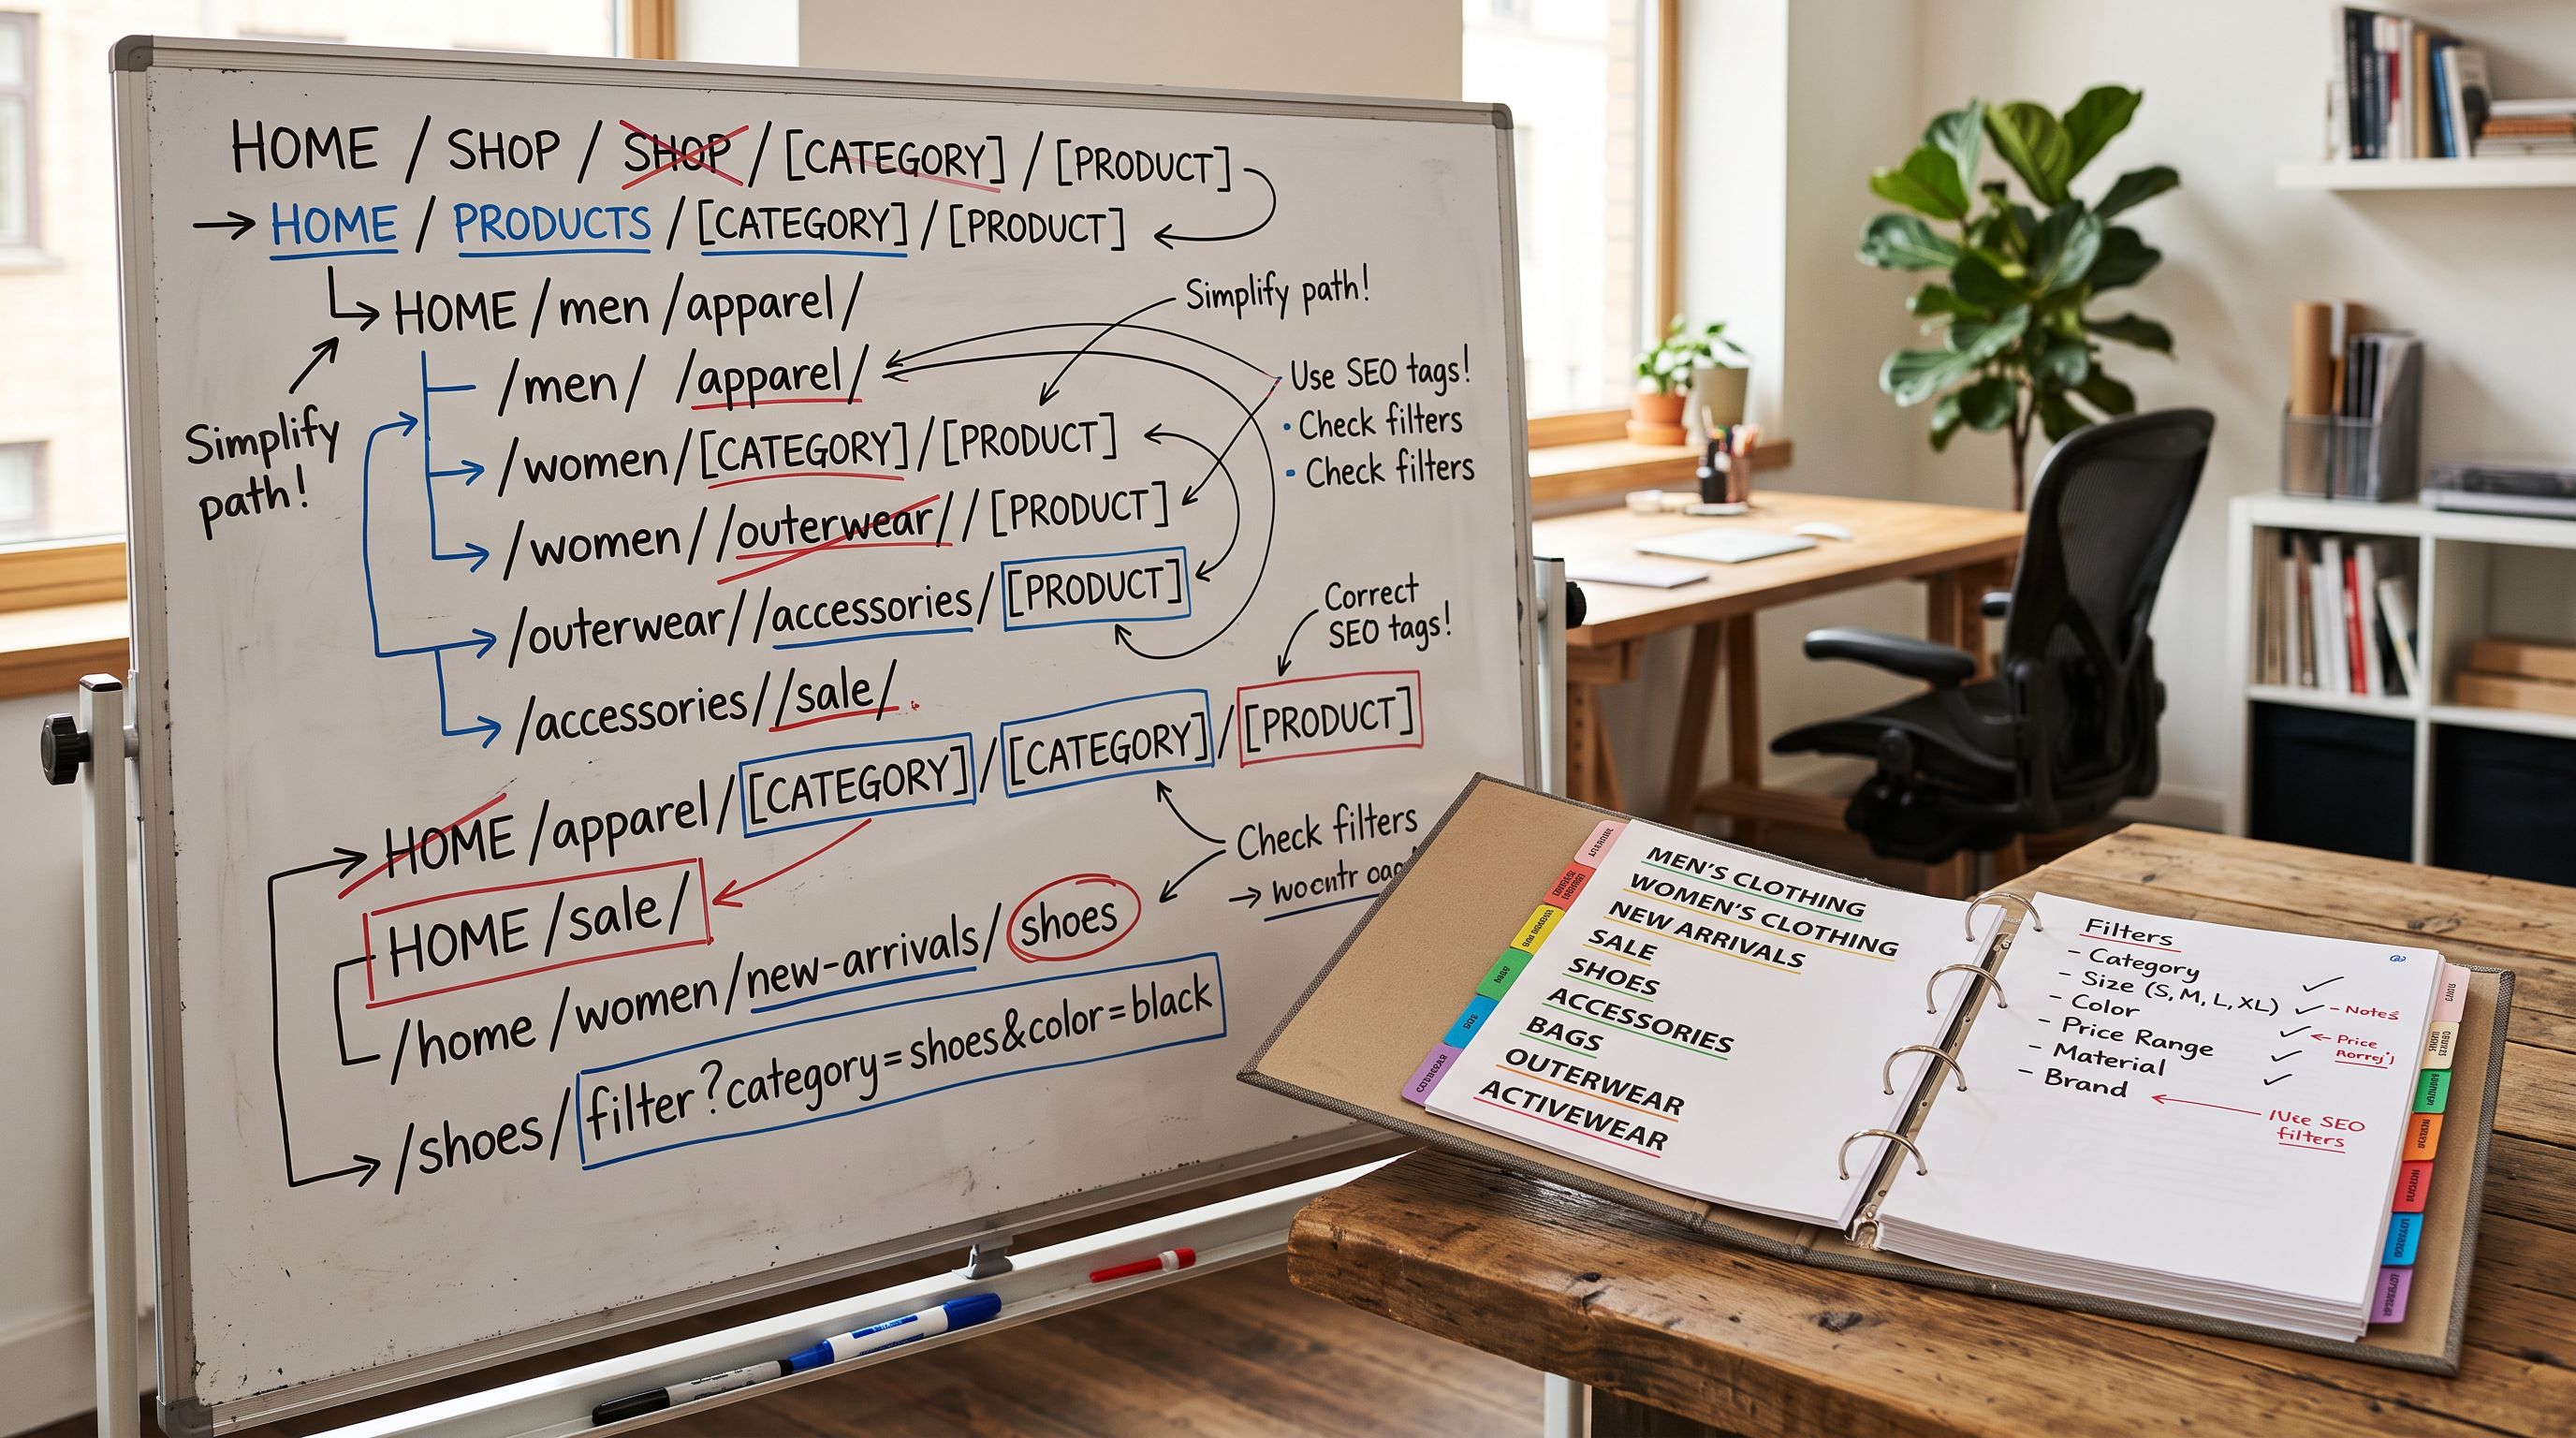 HOME / SHOP / SHOP / [CATEGORY] / [PRODUCT]
HOME / PRODUCTS / [CATEGORY] / [PRODUCT]
HOME / men / apparel /
Simplify path!
/men/ /apparel/
Use SEO tags!
• Check filters
• Check filters
Simplify
path!
/women/[CATEGORY]/[PRODUCT]
/women//outerwear//[PRODUCT]
/outerwear//accessories/[PRODUCT]
Correct
SEO tags!
/accessories//sale/
HOME /apparel/[CATEGORY]/[CATEGORY]/[PRODUCT]
Check filters
HOME /sale/
/home /women/new-arrivals/shoes
/shoes/filter?category=shoes&color=black
MEN'S CLOTHING
WOMEN'S CLOTHING
NEW ARRIVALS
SALE
SHOES
ACCESSORIES
BAGS
OUTERWEAR
ACTIVEWEAR
Filters
- Category
- Size (S, M, L, XL)
- Color
- Price Range
- Material
- Brand
- Notes
Price
SEO
filters